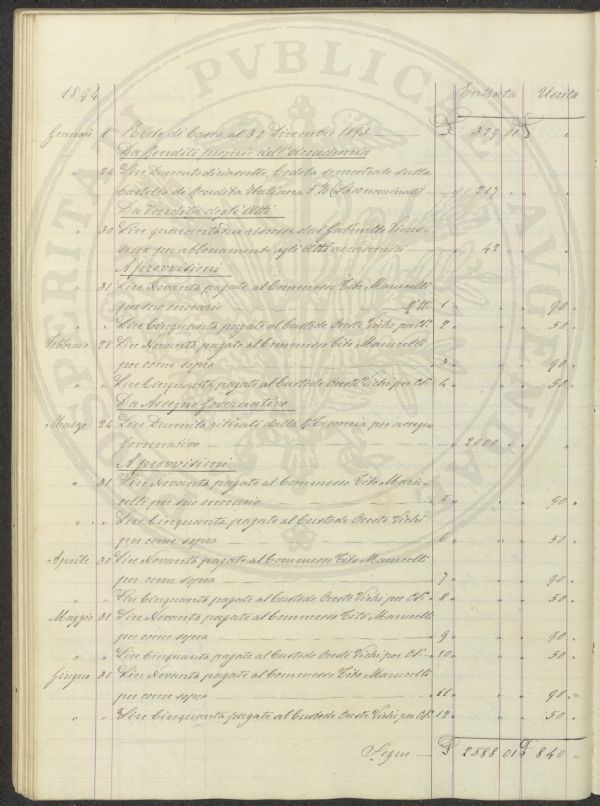 1894 Entrata Uscita
Gennaio 1 Resto di Cassa al 31 Dicembre 1893 £ 329 01 £ "
Da Rendite proprie dell'Accademia
" 24 Lire Duecento diciasette, Cedola semestrale sulla
Cartella di Rendita Italiana 217 " " "
Da Vendita degli Atti
" 30 Lire quarantadue riscosse dal Gabinetto Vieus-
seux per abbonamenti agli Atti accademici 42 " " "
A provvisioni
" 31 Lire Novanta pagate al Commesso Tito Marucelli
per suo onorario 1 " " " 90 "
" " Lire Cinquanta pagate al Custode Oreste Vichi per Cs. 2 " " " 50 "
Febbraio 28 Lire Novanta pagate al Commesso Tito Marucelli
per come sopra 3 " " " 90 "
" " Lire Cinquanta pagate al Custode Oreste Vichi per Cs. 4 " " " 50 "
Da Assegno Governativo
Marzo 24 Lire Duemila ritirate dalla R. Tesoreria per assegno
Governativo 2000 " " "
A provvisioni
" 31 Lire Novanta pagate al Commesso Tito Maru-
celli per suo onorario 5 " " " 90 "
" " Lire Cinquanta pagate al Custode Oreste Vichi
per come sopra 6 " " " 50 "
Aprile 30 Lire Novanta pagate al Commesso Tito Marucelli
per come sopra 7 " " " 90 "
" " Lire Cinquanta pagate al Custode Oreste Vichi per Cs. 8 " " " 50 "
Maggio 31 Lire Novanta pagate al Commesso Tito Marucelli
per come sopra 9 " " " 90 "
" " Lire Cinquanta pagate al Custode Oreste Vichi per Cs. 10 " " " 50 "
Giugno 30 Lire Novanta pagate al Commesso Tito Marucelli
per come sopra 11 " " " 90 "
" " Lire Cinquanta pagate al Custode Oreste Vichi per Cs. 12 " " " 50 "
Segue £ 2588 01 £ 840 "
PROSPERITATI PVBLICAE AVGENDAE